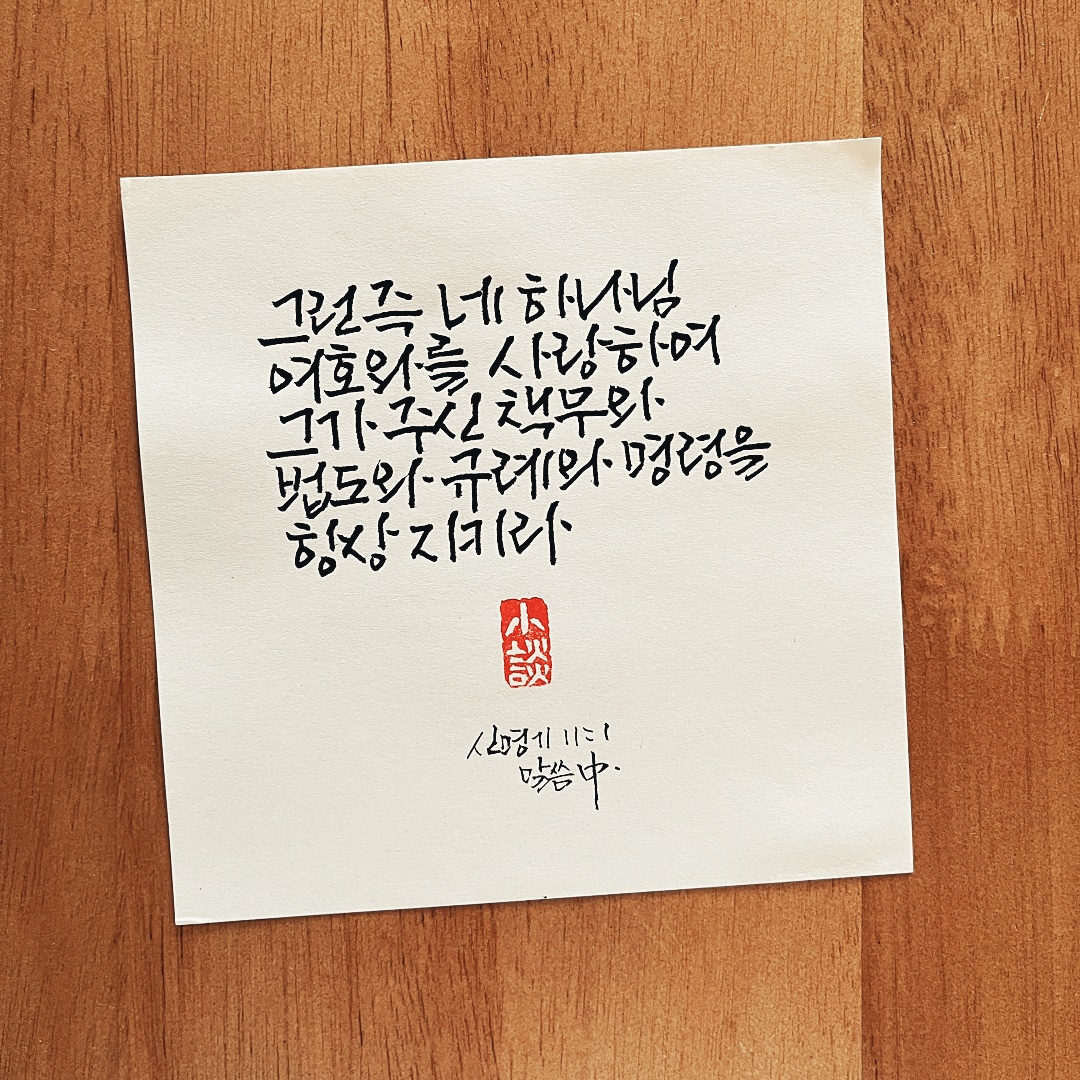 그런즉 네 하나님
여호와를 사랑하여
그가 주신 책무와
법도와 규례와 명령을
항상 지키라
小談
신명기 11:1
말씀 中.